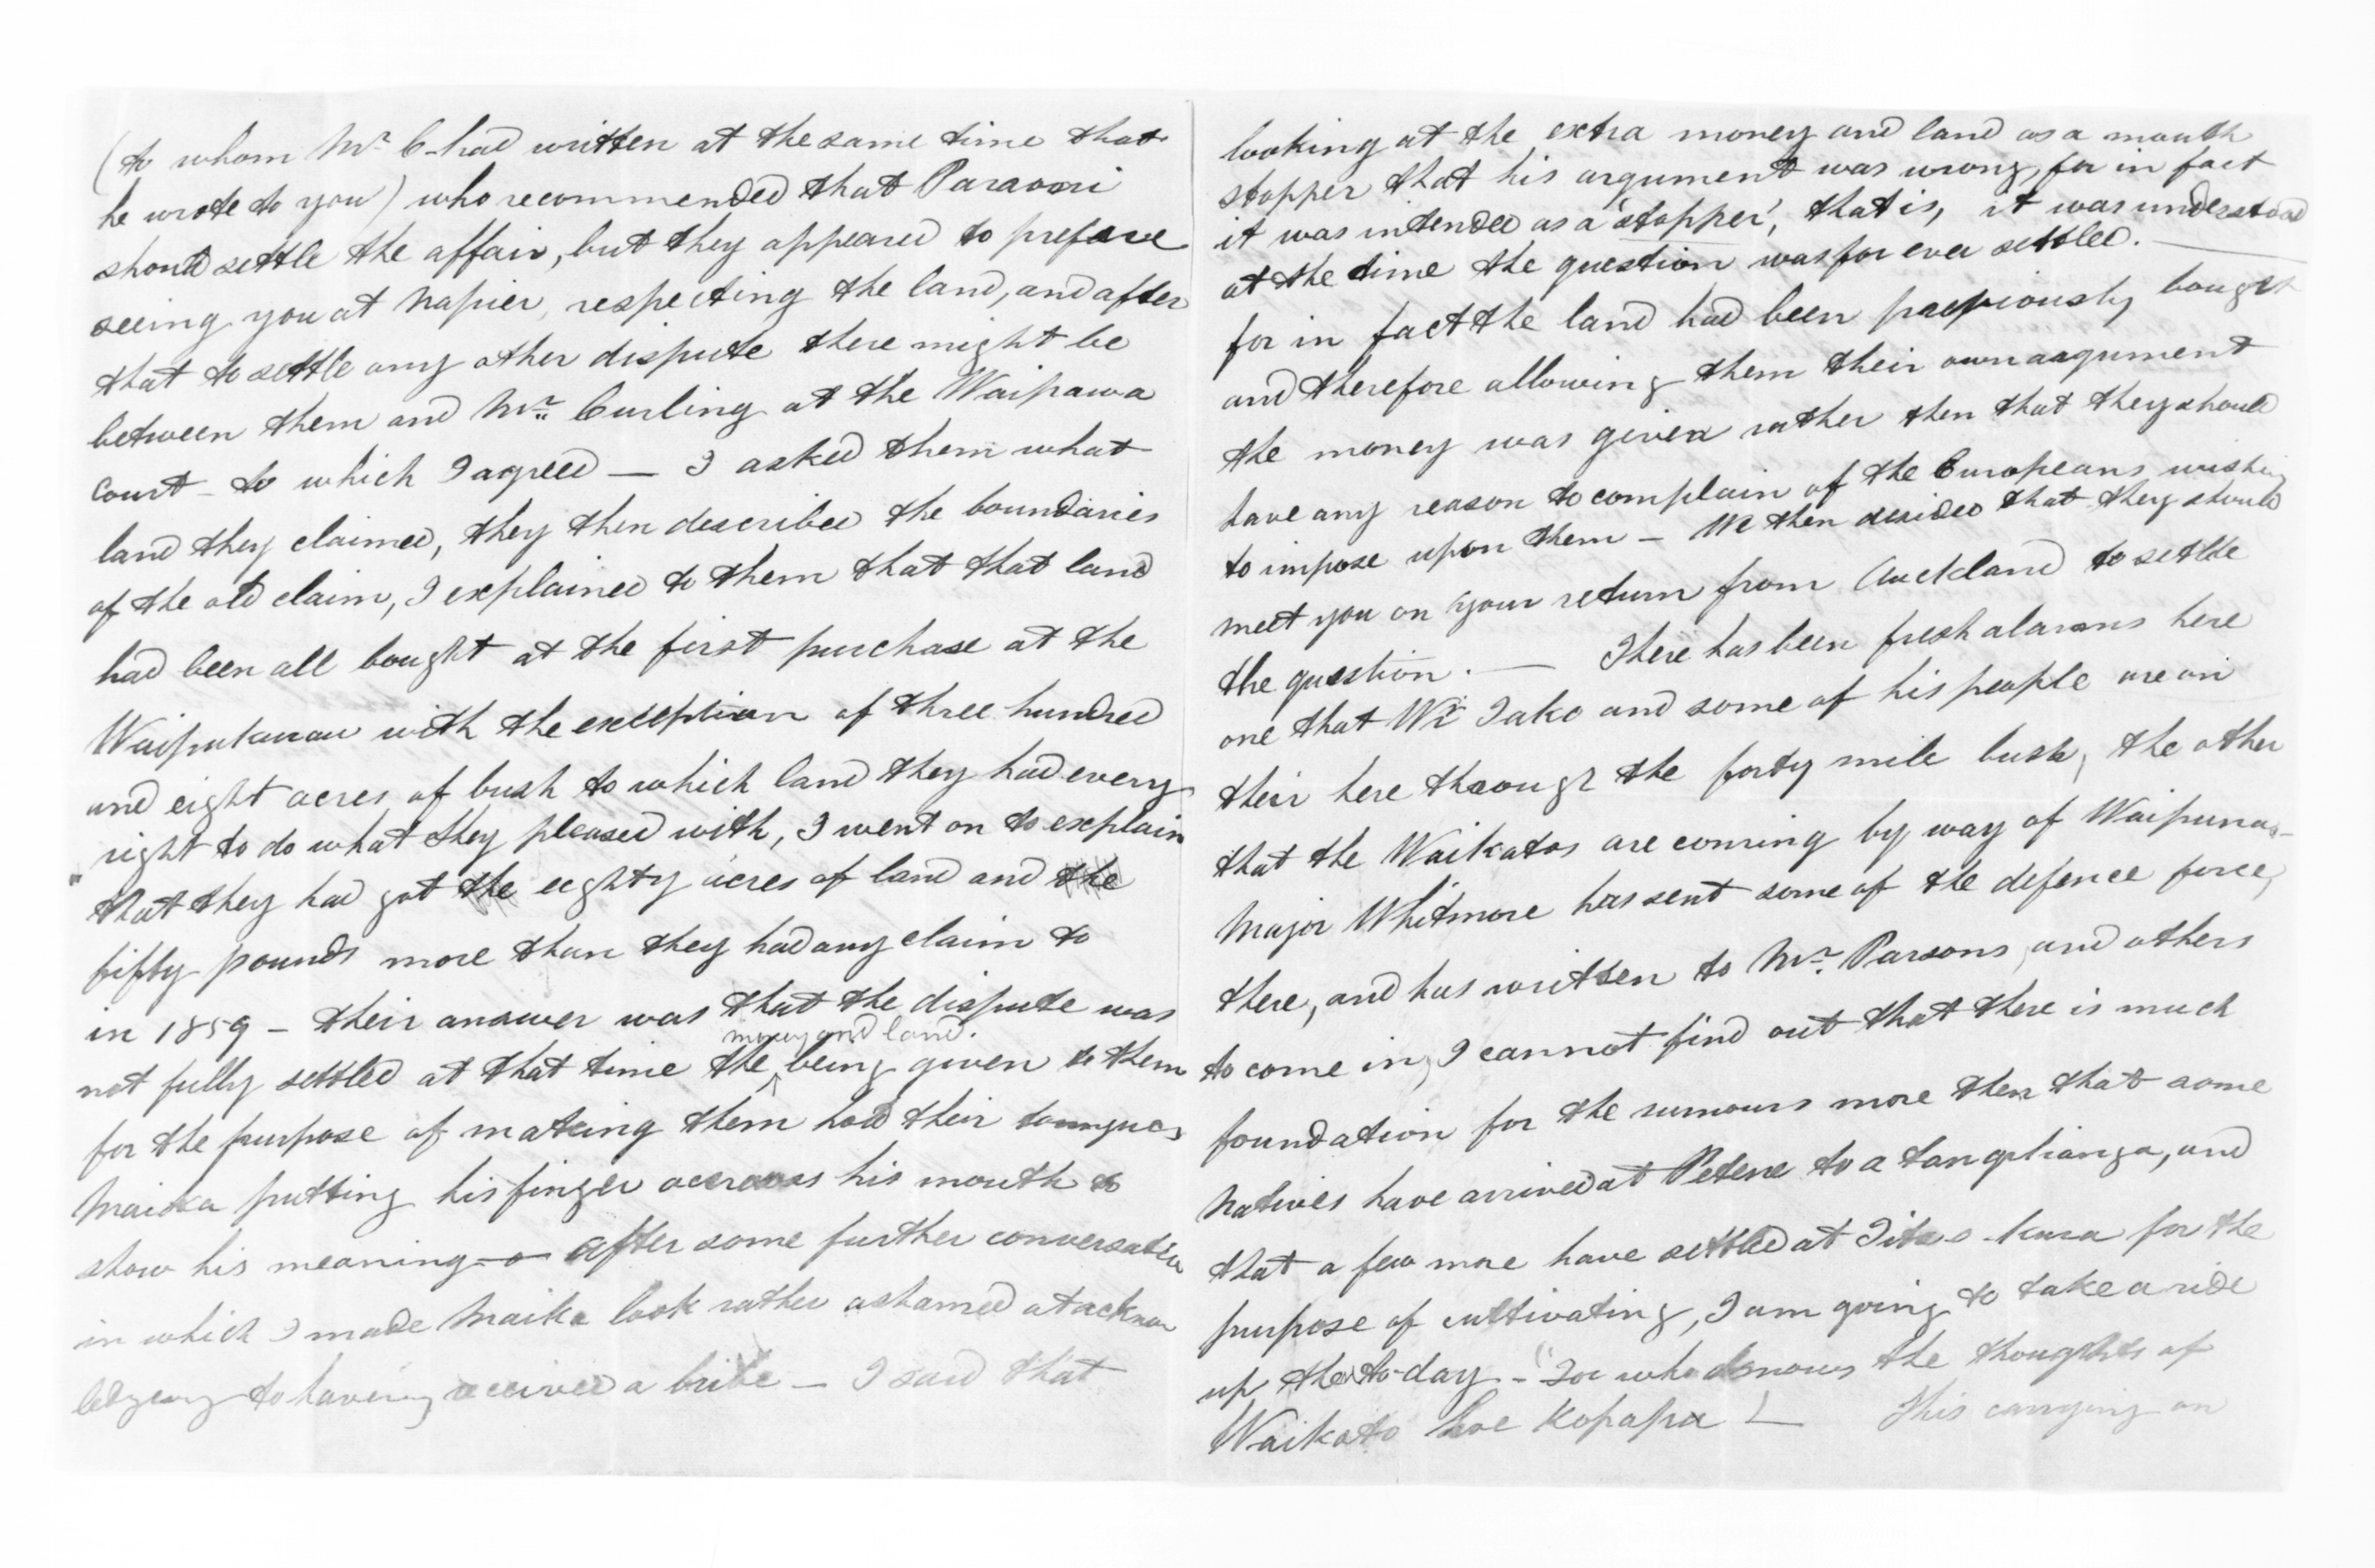 (to whom Mr C- had written at the same time that
he wrote to you) who recommended that Paraoni
should settle the affair, but they appeared to prefare
seeing you at Napier, respecting the land, and after
that to settle any other dispute there might be
between them and Mr. Curling at the Waipawa
Court - to which I agreed — I asked them what
land they claimed, they then described the boundaries
of the old claim, I explained to them that that land
had been all bought at the first purchase at the
Waipukurau with the exception of three hundred
and eight acres of bush to which land they had every
right to do what they pleased with, I went on to explain
that they had got the eighty acres of land and the
fifty pounds more than they had any claim to
in 1859 - their answer was that the dispute was
money and land.
not fully settled at that time the ^ being given to them
for the purpose of making them hold their tounques
Maika putting his finger accross his mouth to
show his meaning - after some further conversation
in which I made Maika look rather ashamed at acknow
ledgeing to having received a bribe — I said that
looking at the extra money and land as a mouth
stopper that his argument was wrong, for in fact
it was intended as a 'stopper', that is, it was understood
at the time the question was for ever settled. —
for in fact the land had been previously bought
and therefore allowing them their own argument
the money was given rather then that they should
have any reason to complain of the Europeans wishing
to impose upon them - We then desided that they should
meet you on your return from Auckland to settle
the question. — There has been fresh alarms here
one that Wi Tako and some of his people are on
their here through the forty mile bush, the other
that the Waikatos are coming by way of Waipuna-
Major Whitmore has sent some of the defence force,
there, and has written to Mr. Parsons, and others
to come in, I cannot find out that there is much
foundation for the rumours more then that some
Natives have arrived at Petene to a tangihanga, and
that a few more have settled at Tita-o-kura for the
purpose of cultivating, I am going to take a ride
up ther to-day - "For who knows the thoughts of
Waikato hoe Kopapa ! — This carrying on